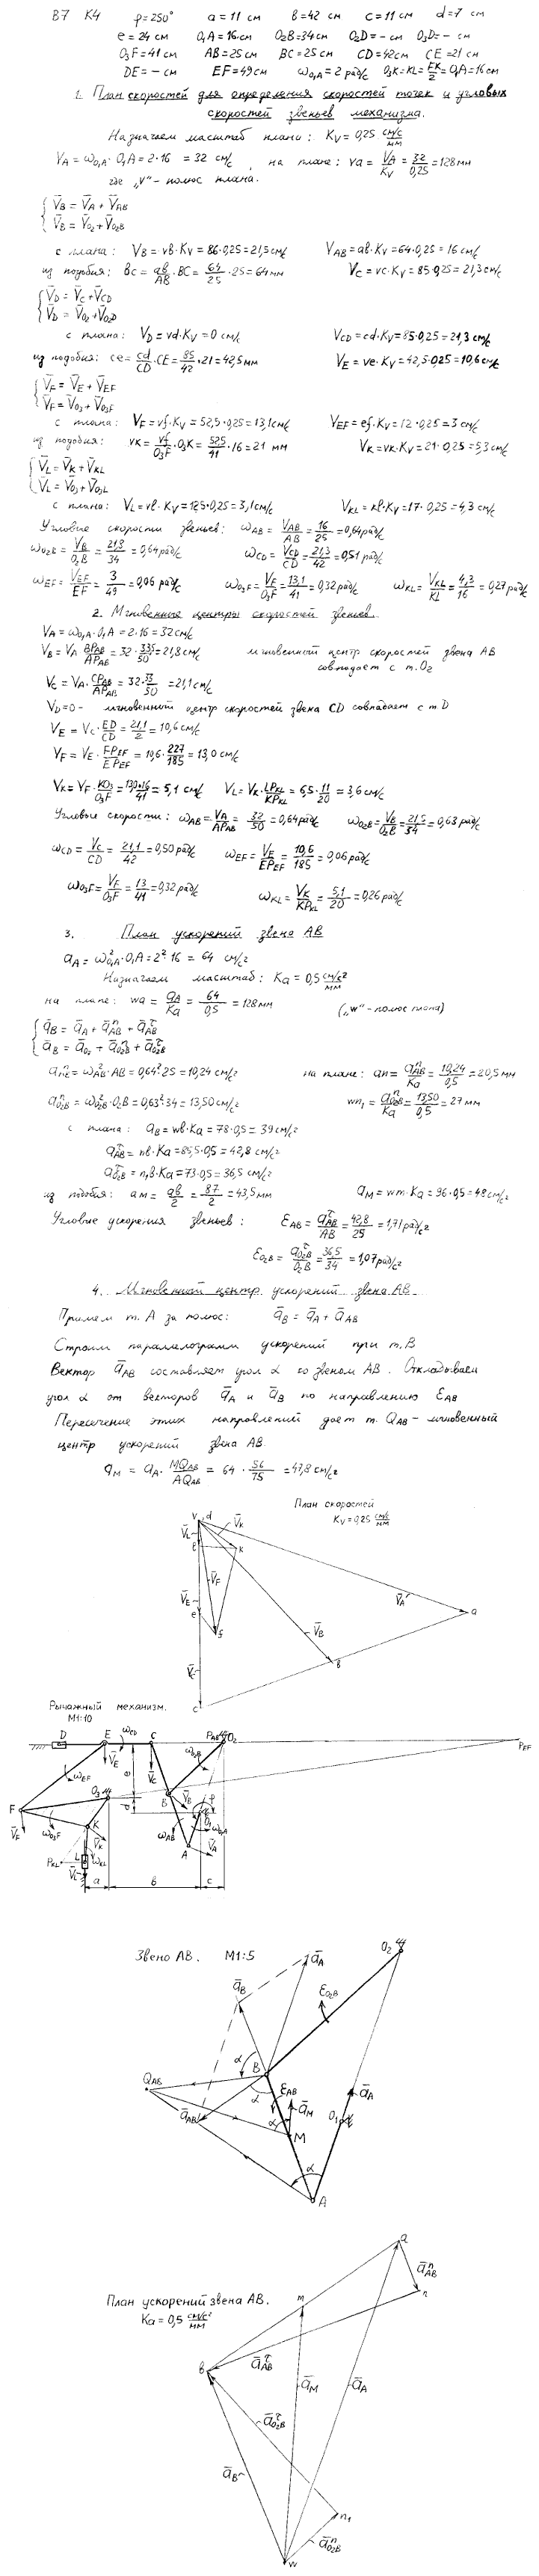 В7 К4 φ=250° a=11 см в=42 см c=11 см d=7 см
e=24 см O₁A=16см O₂B=34см O₂D=– см O₃D=– см
O₃F=41 см AB=25 см BC=25 см CD=42см CE=21 см
DE=– см EF=49 см ω_O₁A=2 рад/с O₃K=KL=EK/2=O₁A=16см
1. План скоростей для определения скоростей точек и угловых
скоростей звеньев механизма.
Назначаем масштаб плана: Kv=0,25 см/с/мм
VA=ω_O₁A·O₁A=2·16=32 см/с, на плане: va=VA/Kv=32/0,25=128мм
где „v"-полюс плана.
V̄B=V̄A+V̄AB
V̄B=V̄O₂+V̄O₂B
с плана: VB=vв·Kv=86·0,25=21,5см/с VAB=aв·Kv=64·0,25=16 см/с
из подобия: вc=aв/AB·BC=64/25·25=64мм VC=vc·Kv=85·0,25=21,3 см/с
V̄D=V̄C+V̄CD
V̄D=V̄O₂+V̄O₂D
с плана: VD=vd·Kv=0 см/с VCD=cd·Kv=85·0,25=21,3 см/с
из подобия: ce=cd/CD·CE=85/42·21=42,5мм VE=ve·Kv=42,5·0,25=10,6см/с
V̄F=V̄E+V̄EF
V̄F=V̄O₃+V̄O₃F
с плана: VF=vf·Kv=52,5·0,25=13,1см/с VEF=ef·Kv=12·0,25=3 см/с
из подобия: vк=vf/O₃F·O₃K=525/41·16=21 мм VK=vк·Kv=21·0,25=5,3 см/с
V̄L=V̄K+V̄KL
V̄L=V̄O₃+V̄O₃L
с плана: VL=vl·Kv=12,5·0,25=3,1см/с VKL=кl·Kv=17·0,25=4,3 см/с
Угловые скорости звеньев: ωAB=VAB/AB=16/25=0,64рад/с
ωO₂B=VB/O₂B=21,8/34=0,64рад/с ωCD=VCD/CD=21,3/42=0,51 рад/с
ωEF=VEF/EF=3/49=0,06 рад/с ωO₃F=VF/O₃F=13,1/41=0,32 рад/с ωKL=VKL/KL=4,3/16=0,27рад/с
2. Мгновенные центры скоростей звеньев.
VA=ω_O₁A·O₁A=2·16=32см/с
VB=VA·BPAB/APAB=32·335/50=21,8см/с мгновенный центр скоростей звена AB
совпадает с т.O₂
VC=VA·CPAB/APAB=32·33/50=21,1см/с
VD=0- мгновенный центр скоростей звена CD совпадает с т.D
VE=VC·ED/CD=21,1/2=10,6см/с
VF=VE·FPEF/EPEF=10,6·227/185=13,0 см/с
VK=VF·KO₃/O₃F=13,0·16/41=5,1 см/с VL=VK·LPKL/KPKL=6,5·11/20=3,6см/с
Угловые скорости: ωAB=VA/APAB=32/50=0,64рад/с ωO₂B=VB/O₂B=21,5/34=0,63рад/с
ωCD=VC/CD=21,1/42=0,50 рад/с ωEF=VE/EPEF=10,6/185=0,06рад/с
ωO₃F=VF/O₃F=13/41=0,32рад/с ωKL=VK/KPKL=5,1/20=0,26рад/с
3. План ускорений звена AB
aA=ω²O₁A·O₁A=2²·16=64 см/с²
Назначаем масштаб: Ka=0,5 см/с²/мм
на плане: wa=aA/Ka=64/0,5=128мм („w"-полюс плана)
āB=āA+āⁿAB+ā^τAB
āB=āO₂+āⁿO₂B+ā^τO₂B
aⁿAB=ω²AB·AB=0,64²·25=10,24см/с² на плане: an=aⁿAB/Ka=10,24/0,5=20,5мм
aⁿO₂B=ω²O₂B·O₂B=0,63²·34=13,50см/с² wn₁=aⁿO₂B/Ka=13,50/0,5=27 мм
с плана: aB=wв·Ka=78·0,5=39см/с²
a^τAB=nв·Ka=85,5·0,5=42,8 см/с²
a^τO₂B=n₁в·Ka=73·0,5=36,5 см/с²
из подобия: am=aв/2=87/2=43,5мм aM=wm·Ka=96·0,5=48см/с²
Угловые ускорения звеньев: εAB=a^τAB/AB=42,8/25=1,71рад/с²
εO₂B=a^τO₂B/O₂B=36,5/34=1,07рад/с²
4. Мгновенный центр ускорений звена AB
Примем т.A за полюс: āB=āA+āAB
Строим параллелограм ускорений при т.B
Вектор āAB составляет угол α со звеном AB. Откладываем
угол α от векторов āA и āB по направлению εAB
Пересечение этих направлений дает т. QAB-мгновенный
центр ускорений звена AB
aM=aA·MQAB/AQAB=64·56/75=47,8см/с²
План скоростей
Kv=0,25 см/с/мм
v d
V̄L V̄K
l k
V̄F
V̄A
V̄E
e
f
a
V̄B
в
V̄C
c
Рычажный механизм.
М1:10
D E ωCD C PAB O₂
PEF
V̄E V̄C ωO₂B
ωEF e
O₃ B V̄B φ
F d O₁
ωO₃F K ωAB ωO₁A
V̄F V̄K A V̄A
PKL L ωKL
V̄L a в c
Звено AB. М1:5
O₂
āA
āB
εO₂B
α B
QAB
α εAB āA
āAB āM O₁
α M
α
A
a
āⁿAB
План ускорений звена AB.
Ka=0,5 см/с²/мм
m
n
в
ā^τAB
āM āA
ā^τO₂B
āB
n₁
āⁿO₂B
w